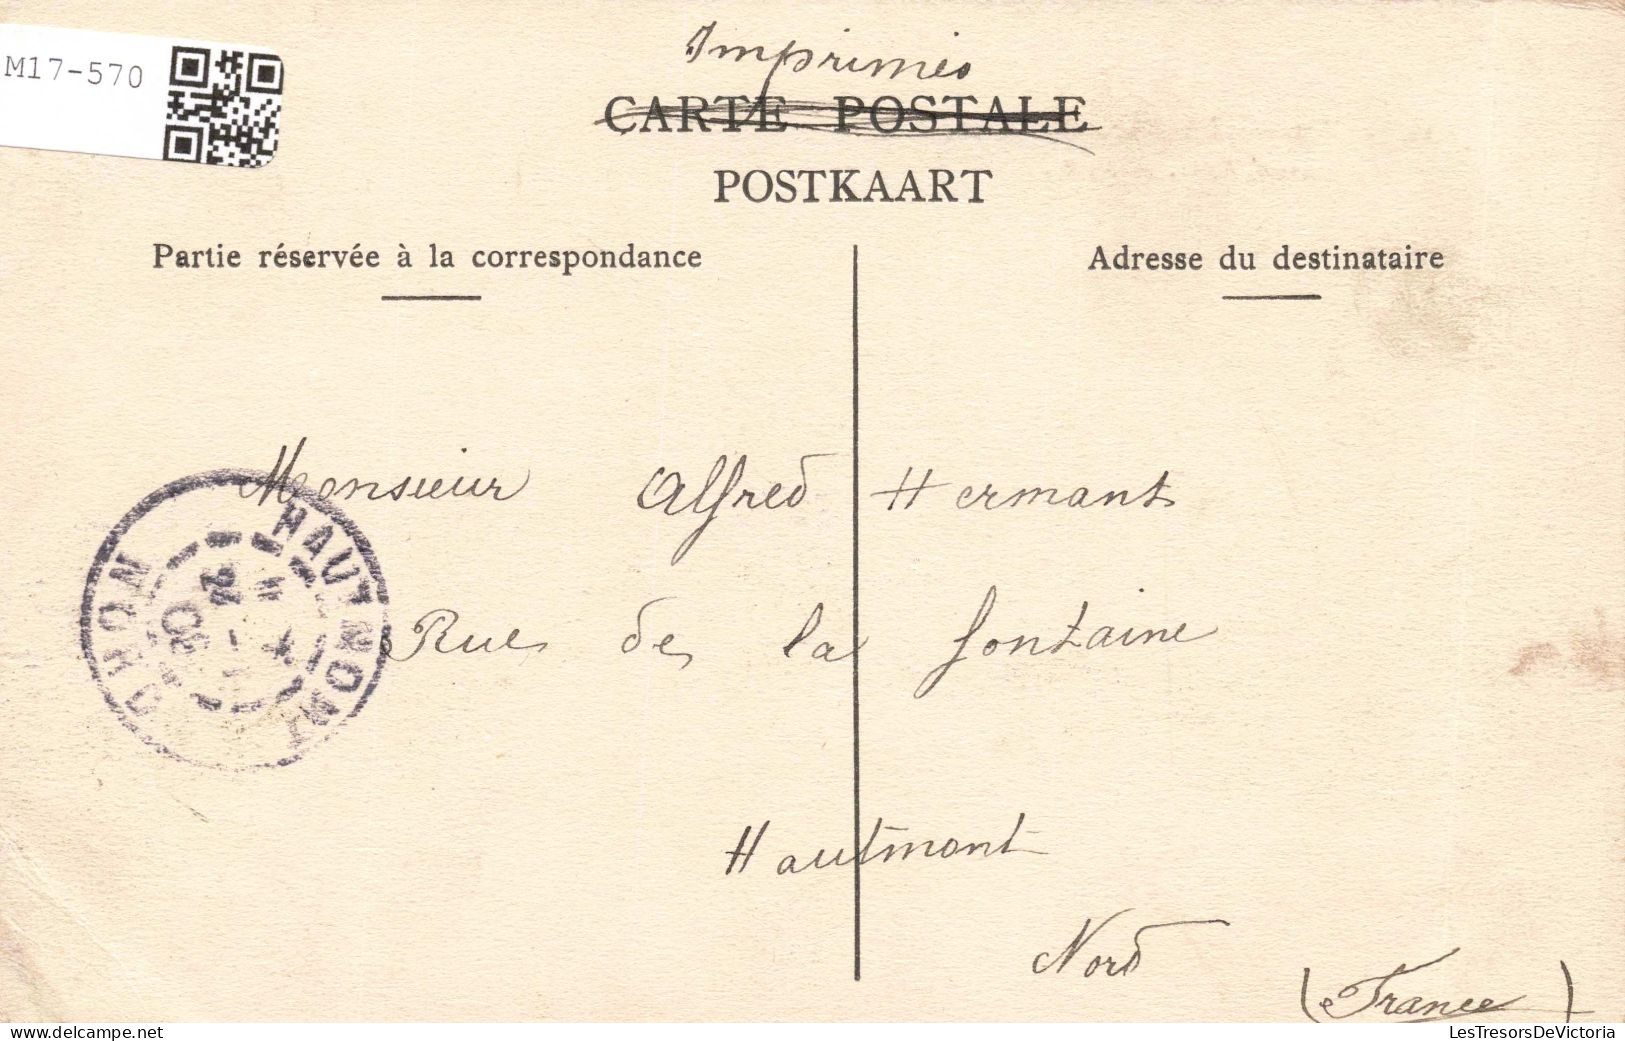 M17-570
Imprimés
CARTE POSTALE
POSTKAART
Partie réservée à la correspondance
Adresse du destinataire
Monsieur Alfred Hermant
Rue de la fontaine
HAUTMONT
NORD
Hautmont
Nord
(France)
LesTresorsDeVictoria